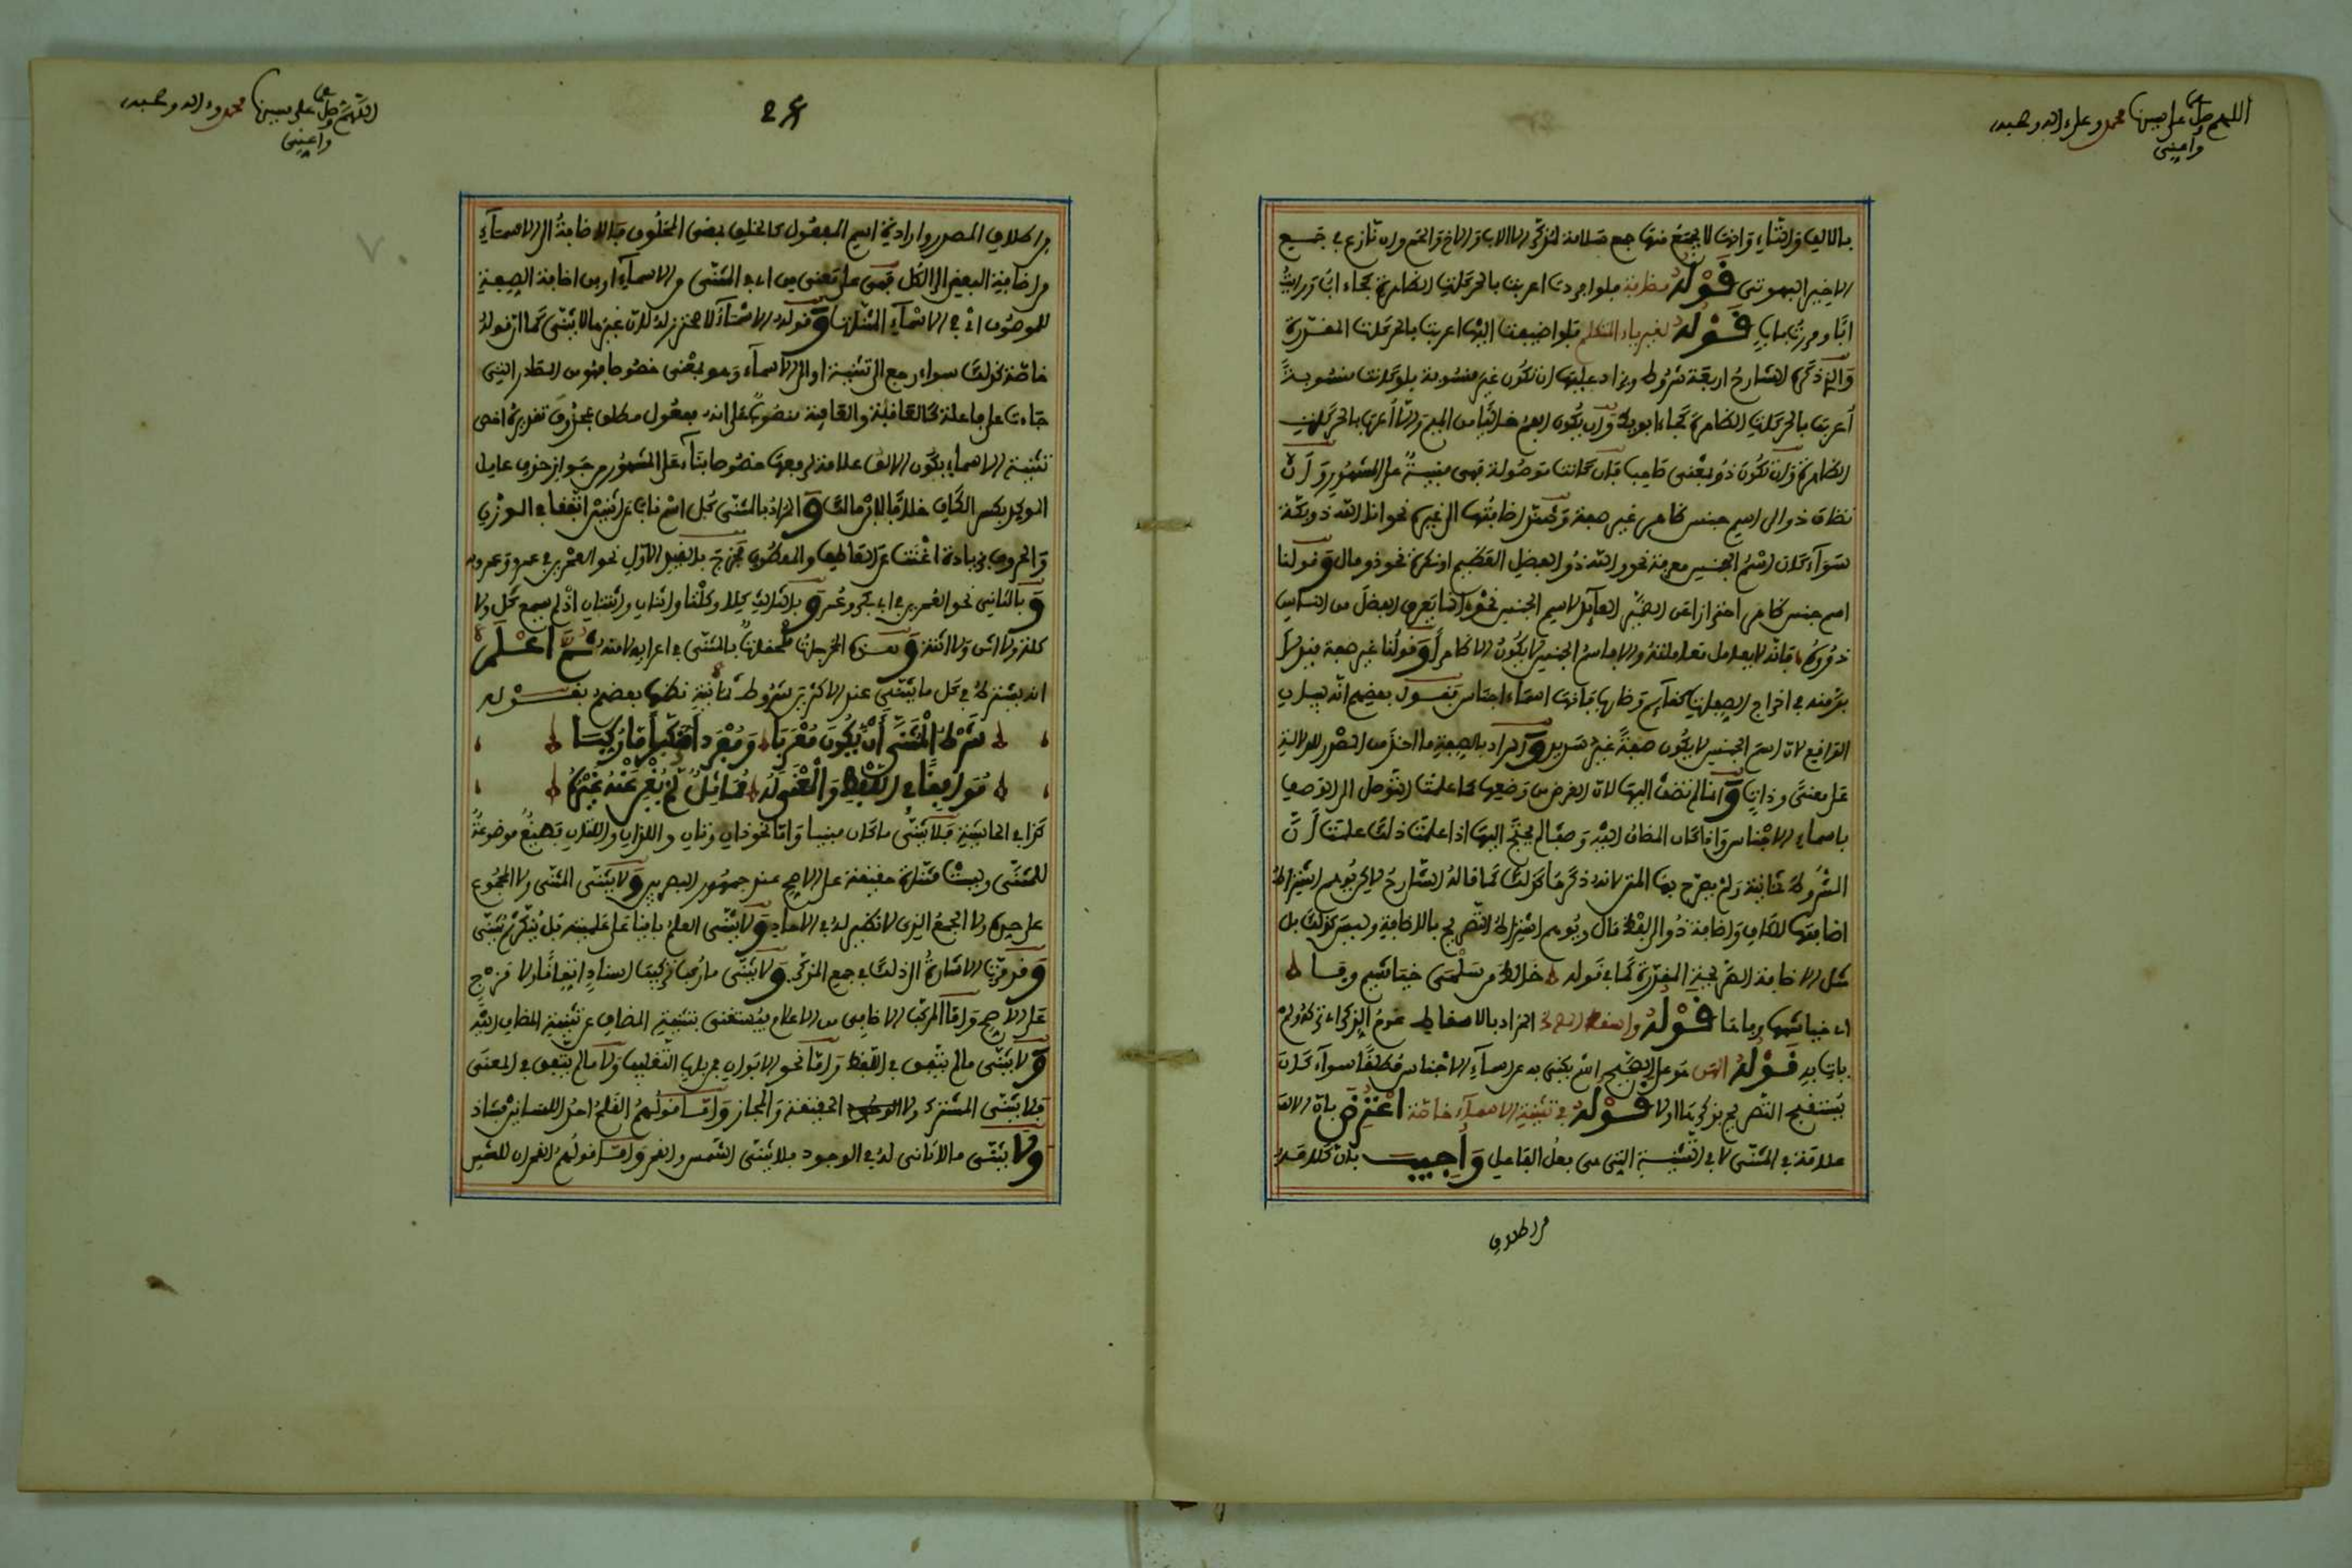 اللهم صل على نبينا محمد وعلى اله وصحبه
وأعني
بالالف والتاء وانها لا يجمع منها جمع سلامة لمذكر الا الاب والاخ والحم وان نازع في جميع
الاخير البهوتي قوله مظربة فلو افردت اعربت بالحركات الظاهرة نحو جاء اب ورايت
ابا ومررت باب قوله لغير ياء المتكلم فلو اضيفت اليها اعربت بالحركات المقدرة
والذي ذكره الشارح اربعة شروط ويزاد عليها ان تكون غير منسوبة فلو كانت منسوبة
أعربت بالحركات الظاهرة كجاء ابويك وان يكون الفم خاليا من الميم والا أعرب بالحركات
الظاهرة وان تكون ذو بمعنى صاحب فان كانت موصولة فهي مبنية على المشهور وأن
تضاف ذو الى اسم جنس ظاهر غير صفة وتمتنع اضافتها الى غيره نحو انا الله ذو بكة
سواء كان اسم الجنس معرفة نحو والله ذو الفضل العظيم او نكرة نحو ذو مال وقولنا
اسم جنس ظاهر احترازا عن الضمير العائد لاسم الجنس نحو انما يعرف الفضل من الناس
ذووه فانه لا يعامل معاملته والا فاسم الجنس لا يكون الا ظاهرا وقولنا غير صفة
في اخراج الصفات كقائم وضارب فانها اسماء اجناس بقول بعضهم انه
الواقع لان اسم الجنس لا يكون صفة غير سديد والمراد بالصفة ما اخذ من المصدر للدلالة
على معنى وذات وانما لم تضف اليها لان الغرض من وضعها كما علمت التوصل الى الوصف
باسماء الاجناس واذا كان المضاف اليه وصفا لم يحتج اليها اذا علمت ذلك علمت أن
الشروط ثمانية ولم يصرح بها المتن لانه ذكرها كذلك كما قاله الشارح لاكن يوهم اشتراط
اضافتها للكاف واضافة ذو الى لفظ مال ويوهم اشتراط التصريح بالاضافة وليس كذلك بل
مثل الاضافة الصريحة المقدرة كما في قوله خالط من سلمى خياشيم وفا
اي خياشيمها وفاها قوله واسقط المراد بالاسقاط عدم الذكر اي تركه ولم
يات به قوله الهن هو على الصحيح اسم يكنى به عن اسماء الاجناس مطلقا سواء كان
يستقبح التصريح بذكرها اولا قوله في تثنية الاسماء خاصة اعترض بان الالف
علامة في المثنى لا في التثنية التي هي فعل الفاعل وأجيب بان كلامه
من اطلاق
اللهم صل على نبينا محمد واله وصحبه
وأعني
من اطلاق المصدر وارادة اسم المفعول كالخلق بمعنى المخلوق فالاضافة الى الاسماء
من اضافة البعض الى الكل فهي على معنى من اي المثنى من الاسماء او من اضافة الصفة
للموصوف اي في الاسماء المثنات وقوله الاسماء لا محترز له لان غيرها لا يثنى كما ان قوله
خاصة كذلك سواء رجع الى تثنية او الى الاسماء وهو بمعنى خصوصا فهو من المصادر التي
جاءت على فاعلة كالعافية والعاقبة منصوب على انه مفعول مطلق بمحذوف تقديره اخص
تثنية الاسماء بكون الالف علامة لرفعها خصوصا بناء على المشهور من جواز حذف عامل
الموكد بكسر الكاف خلافا لابن مالك والمراد بالمثنى كل اسم ناب عن اثنين اتفقا في الوزن
والحروف بزيادة اغنت عن العاطف والمعطوف فخرج بالقيد الاول نحو العمرين في عمرو وعمر
وبالثاني نحو العمرين في ابي بكر وعمر وبالثالث كلا وكلتا واثنان واثنتان اذ لم يسمع كل ولا
كلت ولا اثن ولا اثنة وهذه المخرجات ملحقات بالمثنى في اعرابه لا منه ثم اعلم
انه يشترط في كل ما يثنى عند الاكثرين شروط ثمانية نظمها بعضهم بقوله
شرط المثنى أن يكون معربا ومفردا منكرا ما ركبا
موافقا في اللفظ والمعنى له مماثل لم يغن عنه غيره
كذا في الحاشية فلا يثنى ما كان مبنيا واما نحو ذان وتان واللذان واللتان فصيغ موضوعة
للمثنى وليست مثناة حقيقة على الاصح عند جمهور البصريين ولا يثنى المثنى ولا المجموع
على حده ولا الجمع الذي لا نظير له في الاحاد ولا يثنى العلم باقيا على علميته بل ينكر ثم يثنى
وقد قدمنا الاشارة الى ذلك في جمع المذكر ولا يثنى ما ركب تركيب اسناد اتفاقا ولا مزج
على الاصح واما المركب الاضافي من الاعلام فيستغنى بتثنية المضاف عن تثنية المضاف اليه
ولا يثنى ما لم يتفق في اللفظ واما نحو الابوان فمن باب التغليب ولا ما لم يتفق في المعنى
فلا يثنى المشترك ولا الحقيقة والمجاز واما قولهم القلم احد اللسانين فشاذ
ولا يثنى ما لا ثاني له في الوجود فلا يثنى الشمس والقمر واما قولهم القمران للشمس